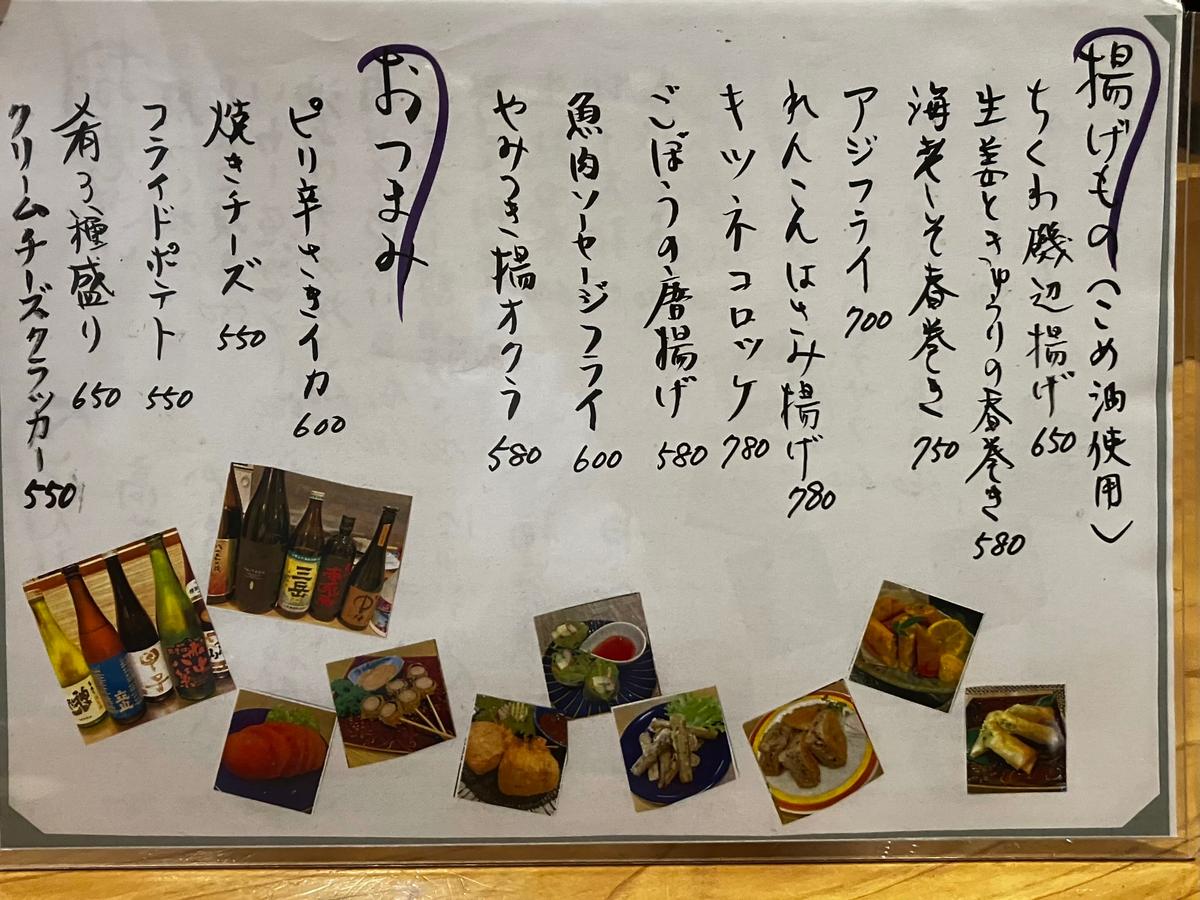 揚げもの（こめ油使用）
ちくわ磯辺揚げ 650
生姜ときゅうりの春巻き 580
海老しそ春巻き 750
アジフライ 700
れんこんはさみ揚げ 780
キツネコロッケ 780
ごぼうの唐揚げ 580
魚肉ソーセージフライ 600
やみつき揚オクラ 580
おつまみ
ピリ辛さきイカ 600
焼きチーズ 550
フライドポテト 550
肴3種盛り 650
クリームチーズクラッカー 550
三岳